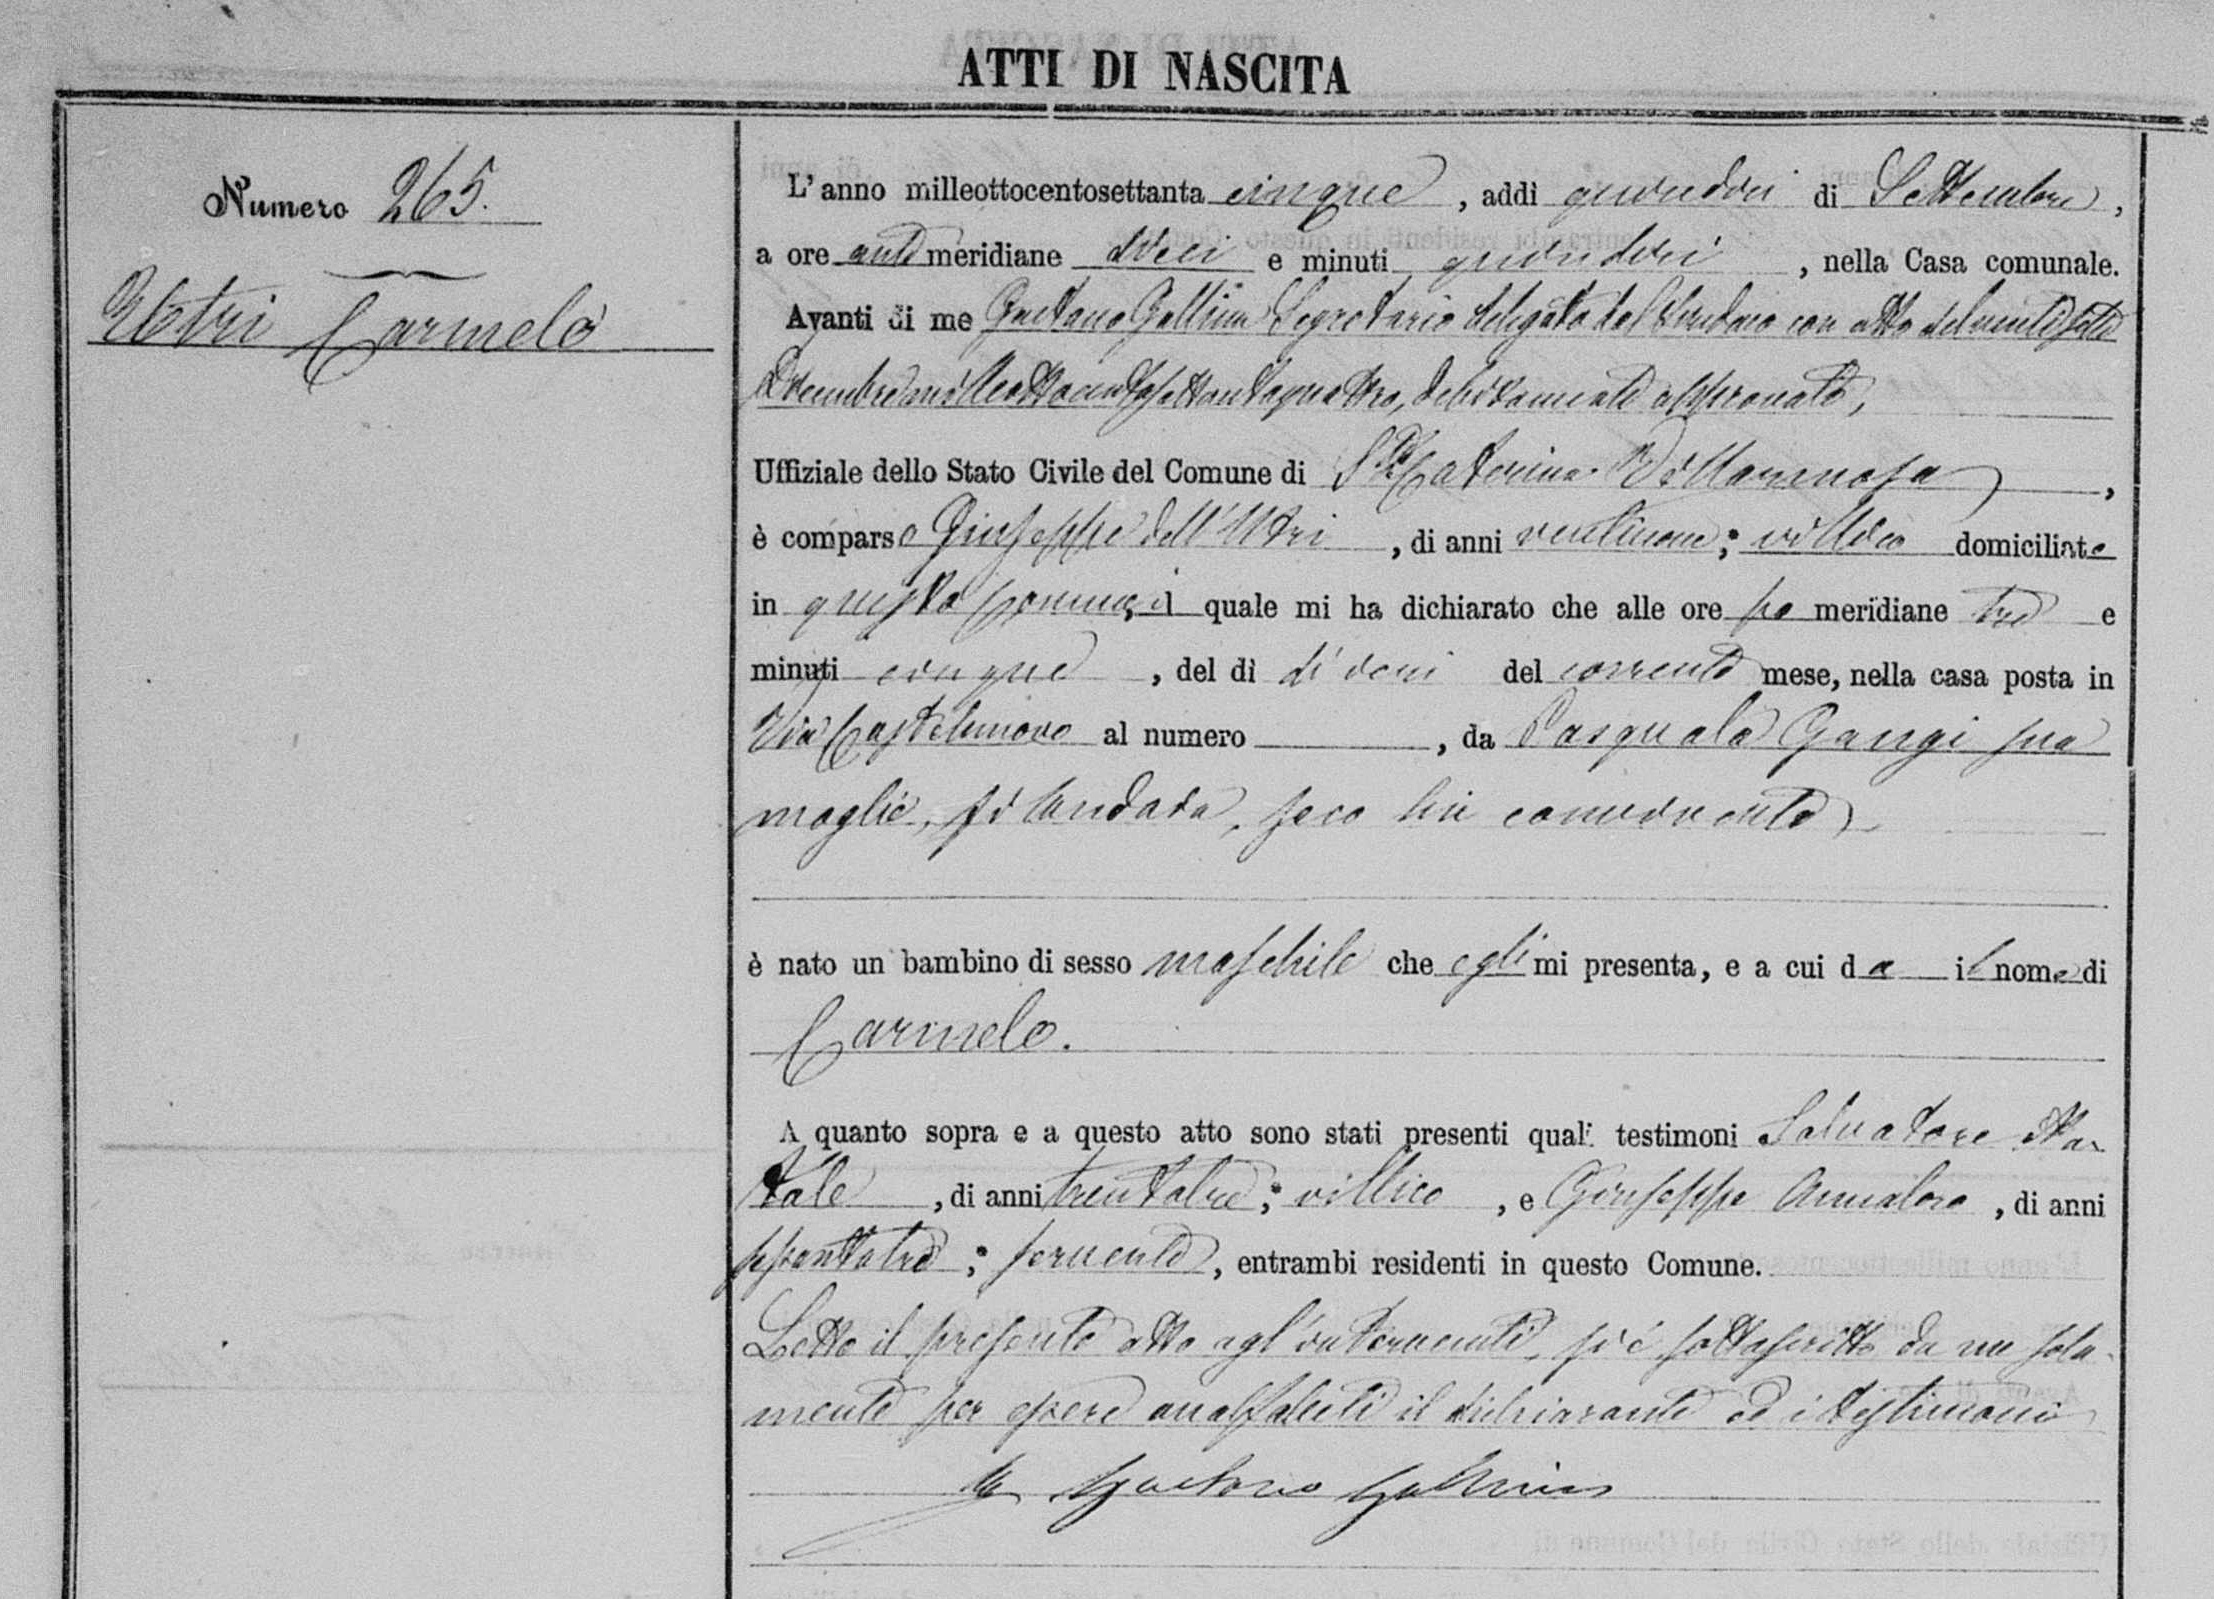 ATTI DI NASCITA
Numero 265.
Utri Carmelo
L'anno milleottocentosettanta cinque, addì quindici di Settembre,
a ore anti meridiane dieci e minuti quindici, nella Casa comunale.
Avanti di me Gaetano Gallina Segretario delegato dal Sindaco con atto del ventisette
Dicembre milleottocentosettantaquattro, debitamente approvato,
Uffiziale dello Stato Civile del Comune di S.ta Caterina Villarmosa,
è comparso Giuseppe dell'Utri, di anni ventinove; villico domiciliato
in questo Comune, il quale mi ha dichiarato che alle ore po meridiane tre e
minuti cinque, del dì dieci del corrente mese, nella casa posta in
Via Castelnuovo al numero , da Pasquala Gangi sua
moglie, filandara, seco lui convivente
è nato un bambino di sesso maschile che egli mi presenta, e a cui da il nome di
Carmelo.
A quanto sopra e a questo atto sono stati presenti quali testimoni Salvatore
, di anni trentatre; villico, e Giuseppe , di anni
; servente, entrambi residenti in questo Comune.
Letto il presente atto agl'intervenuti, si è sottoscritto da me sola-
mente per essere analfabeti il dichiarante ed i testimoni
Gaetano Gallina